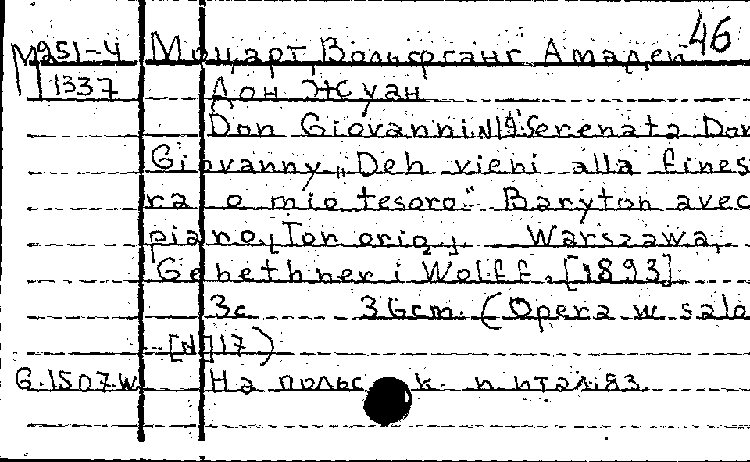 46
М251-4 Моцарт, Вольфганг Амадей
1337 Дон Жуан
Don Giovanni. N19. Serenata Don
Giovanny „Deh vieni alla fines
ra o mio tesoro." Baryton avec
piano. [Ton orig]. Warszawa,
Gebethner i Wolff. [1893]
3с 36cm. (Opera w salo
[N]17)
G.1507.W. На польск. и итал. яз.